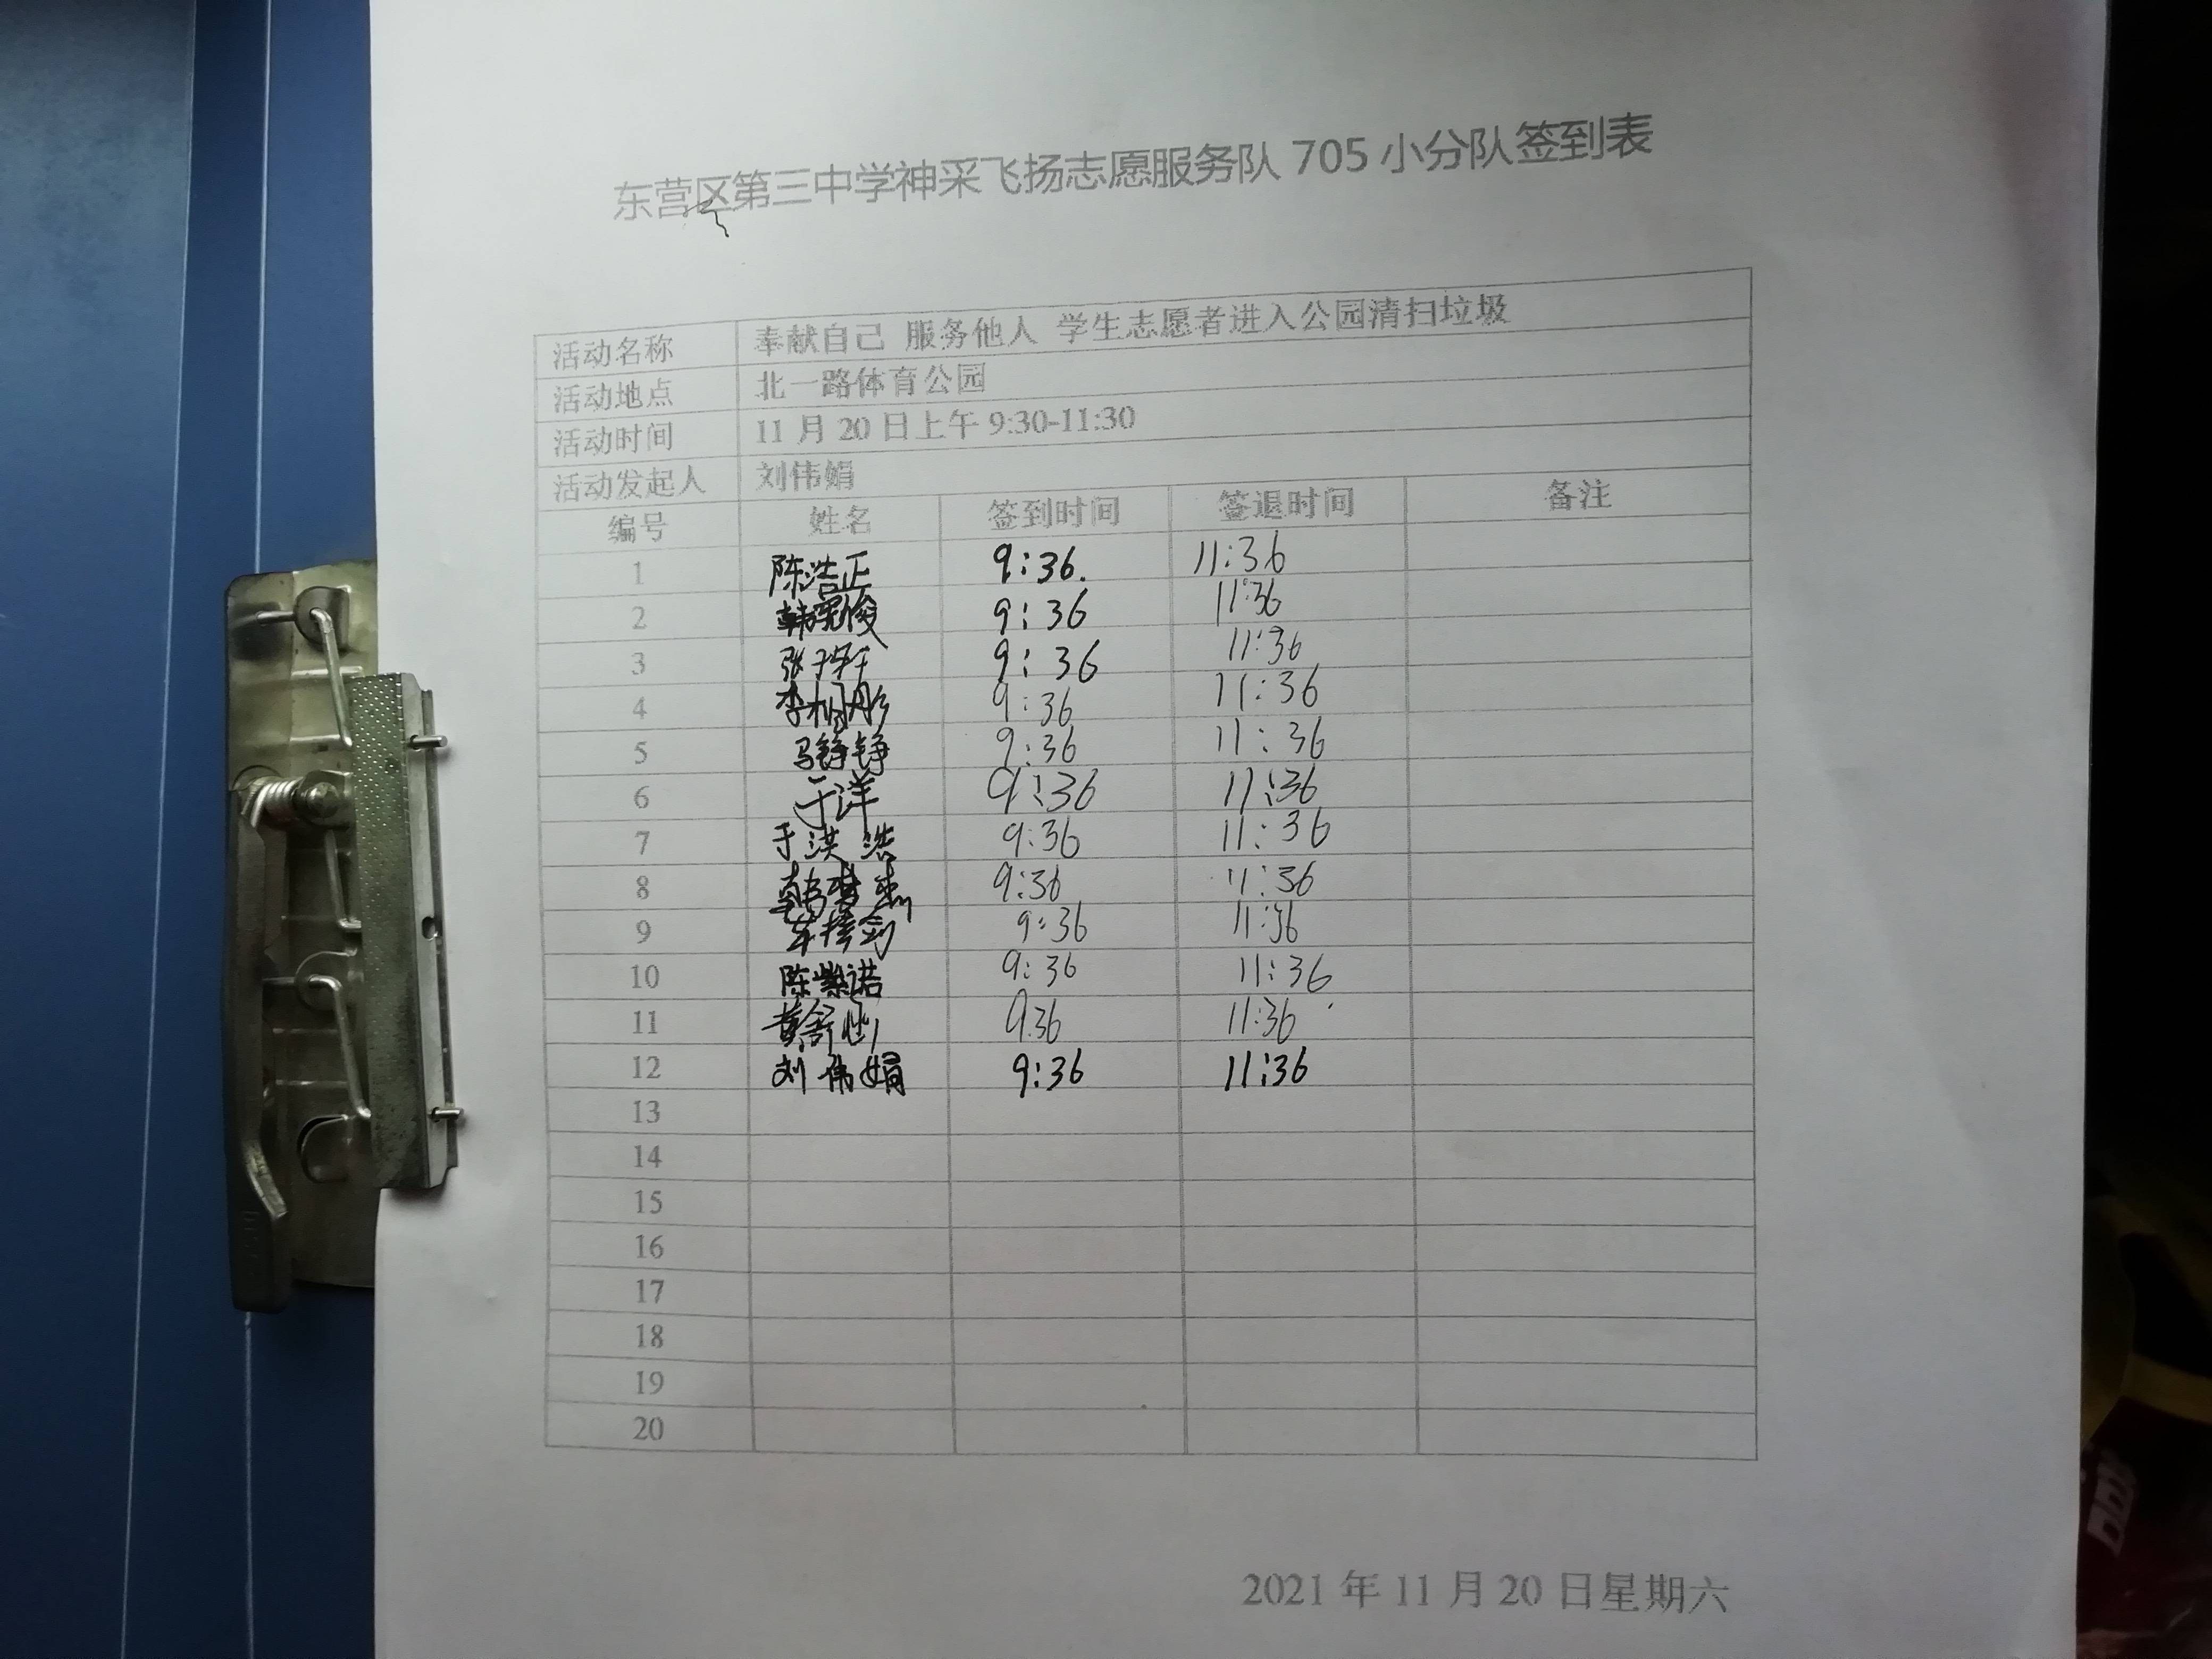 东营区第三中学神采飞扬志愿服务队 705 小分队签到表
活动名称 奉献自己 服务他人 学生志愿者进入公园清扫垃圾
活动地点 北一路体育公园
活动时间 11 月 20 日上午 9:30-11:30
活动发起人 刘伟娟
编号 姓名 签到时间 签退时间 备注
1 陈浩正 9:36. 11:36
2 韩 俊 9:36 11:36
3 张 轩 9:36 11:36
4 李 彤 9:36 11:36
5 马铮铮 9:36 11:36
6 于洋 9:36 11:36
7 于淇浩 9:36 11:36
8 9:36 11:36
9 9:36 11:36
10 陈紫诺 9:36 11:36
11 黄舒 9:36 11:36
12 刘伟娟 9:36 11:36
13
14
15
16
17
18
19
20
2021 年 11 月 20 日星期六